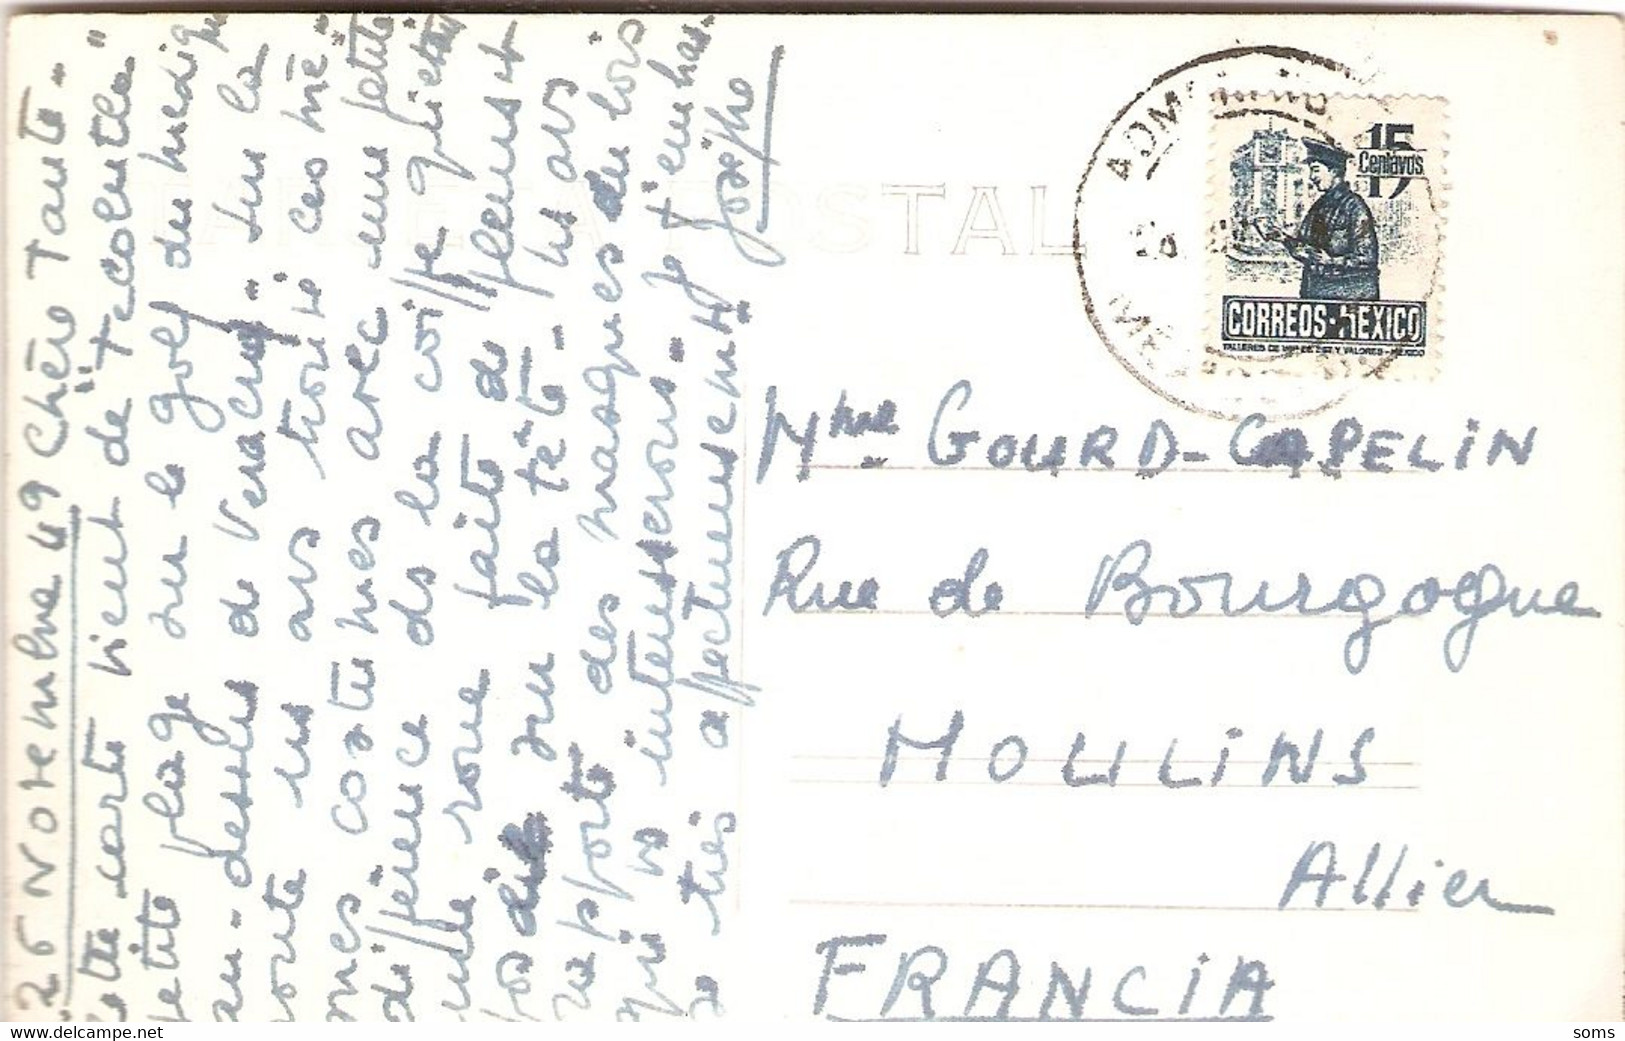 26 Novembre 49 Chère Tante-
Cette carte vient de "Tecolutla"
petite plage sur le golf du mexique
au-dessus de Veracruz. Sur la
route ns avs trouvé ces mê-
mes costumes avec une petite
différence ds la coiffe qui était
une roue faite de plumes et
posée sur la tête - ns avs
rapporté des masques de bois
qui vs intéresserons. Je t'embras-
se très affectueusement. Josèphe
TARJETA POSTAL
ADMON
MEXICO
15
Centavos
CORREOS-MEXICO
TALLERES DE IMP. DE EST. Y VALORES-MEXICO
Mme GOURD-CAPELIN
Rue de Bourgogne
MOULINS
Allier
FRANCIA
soms